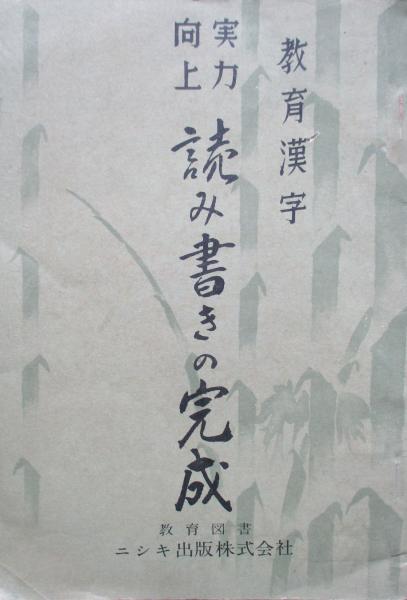 教育漢字
実力
向上
読み書きの完成
教育図書
ニシキ出版株式会社